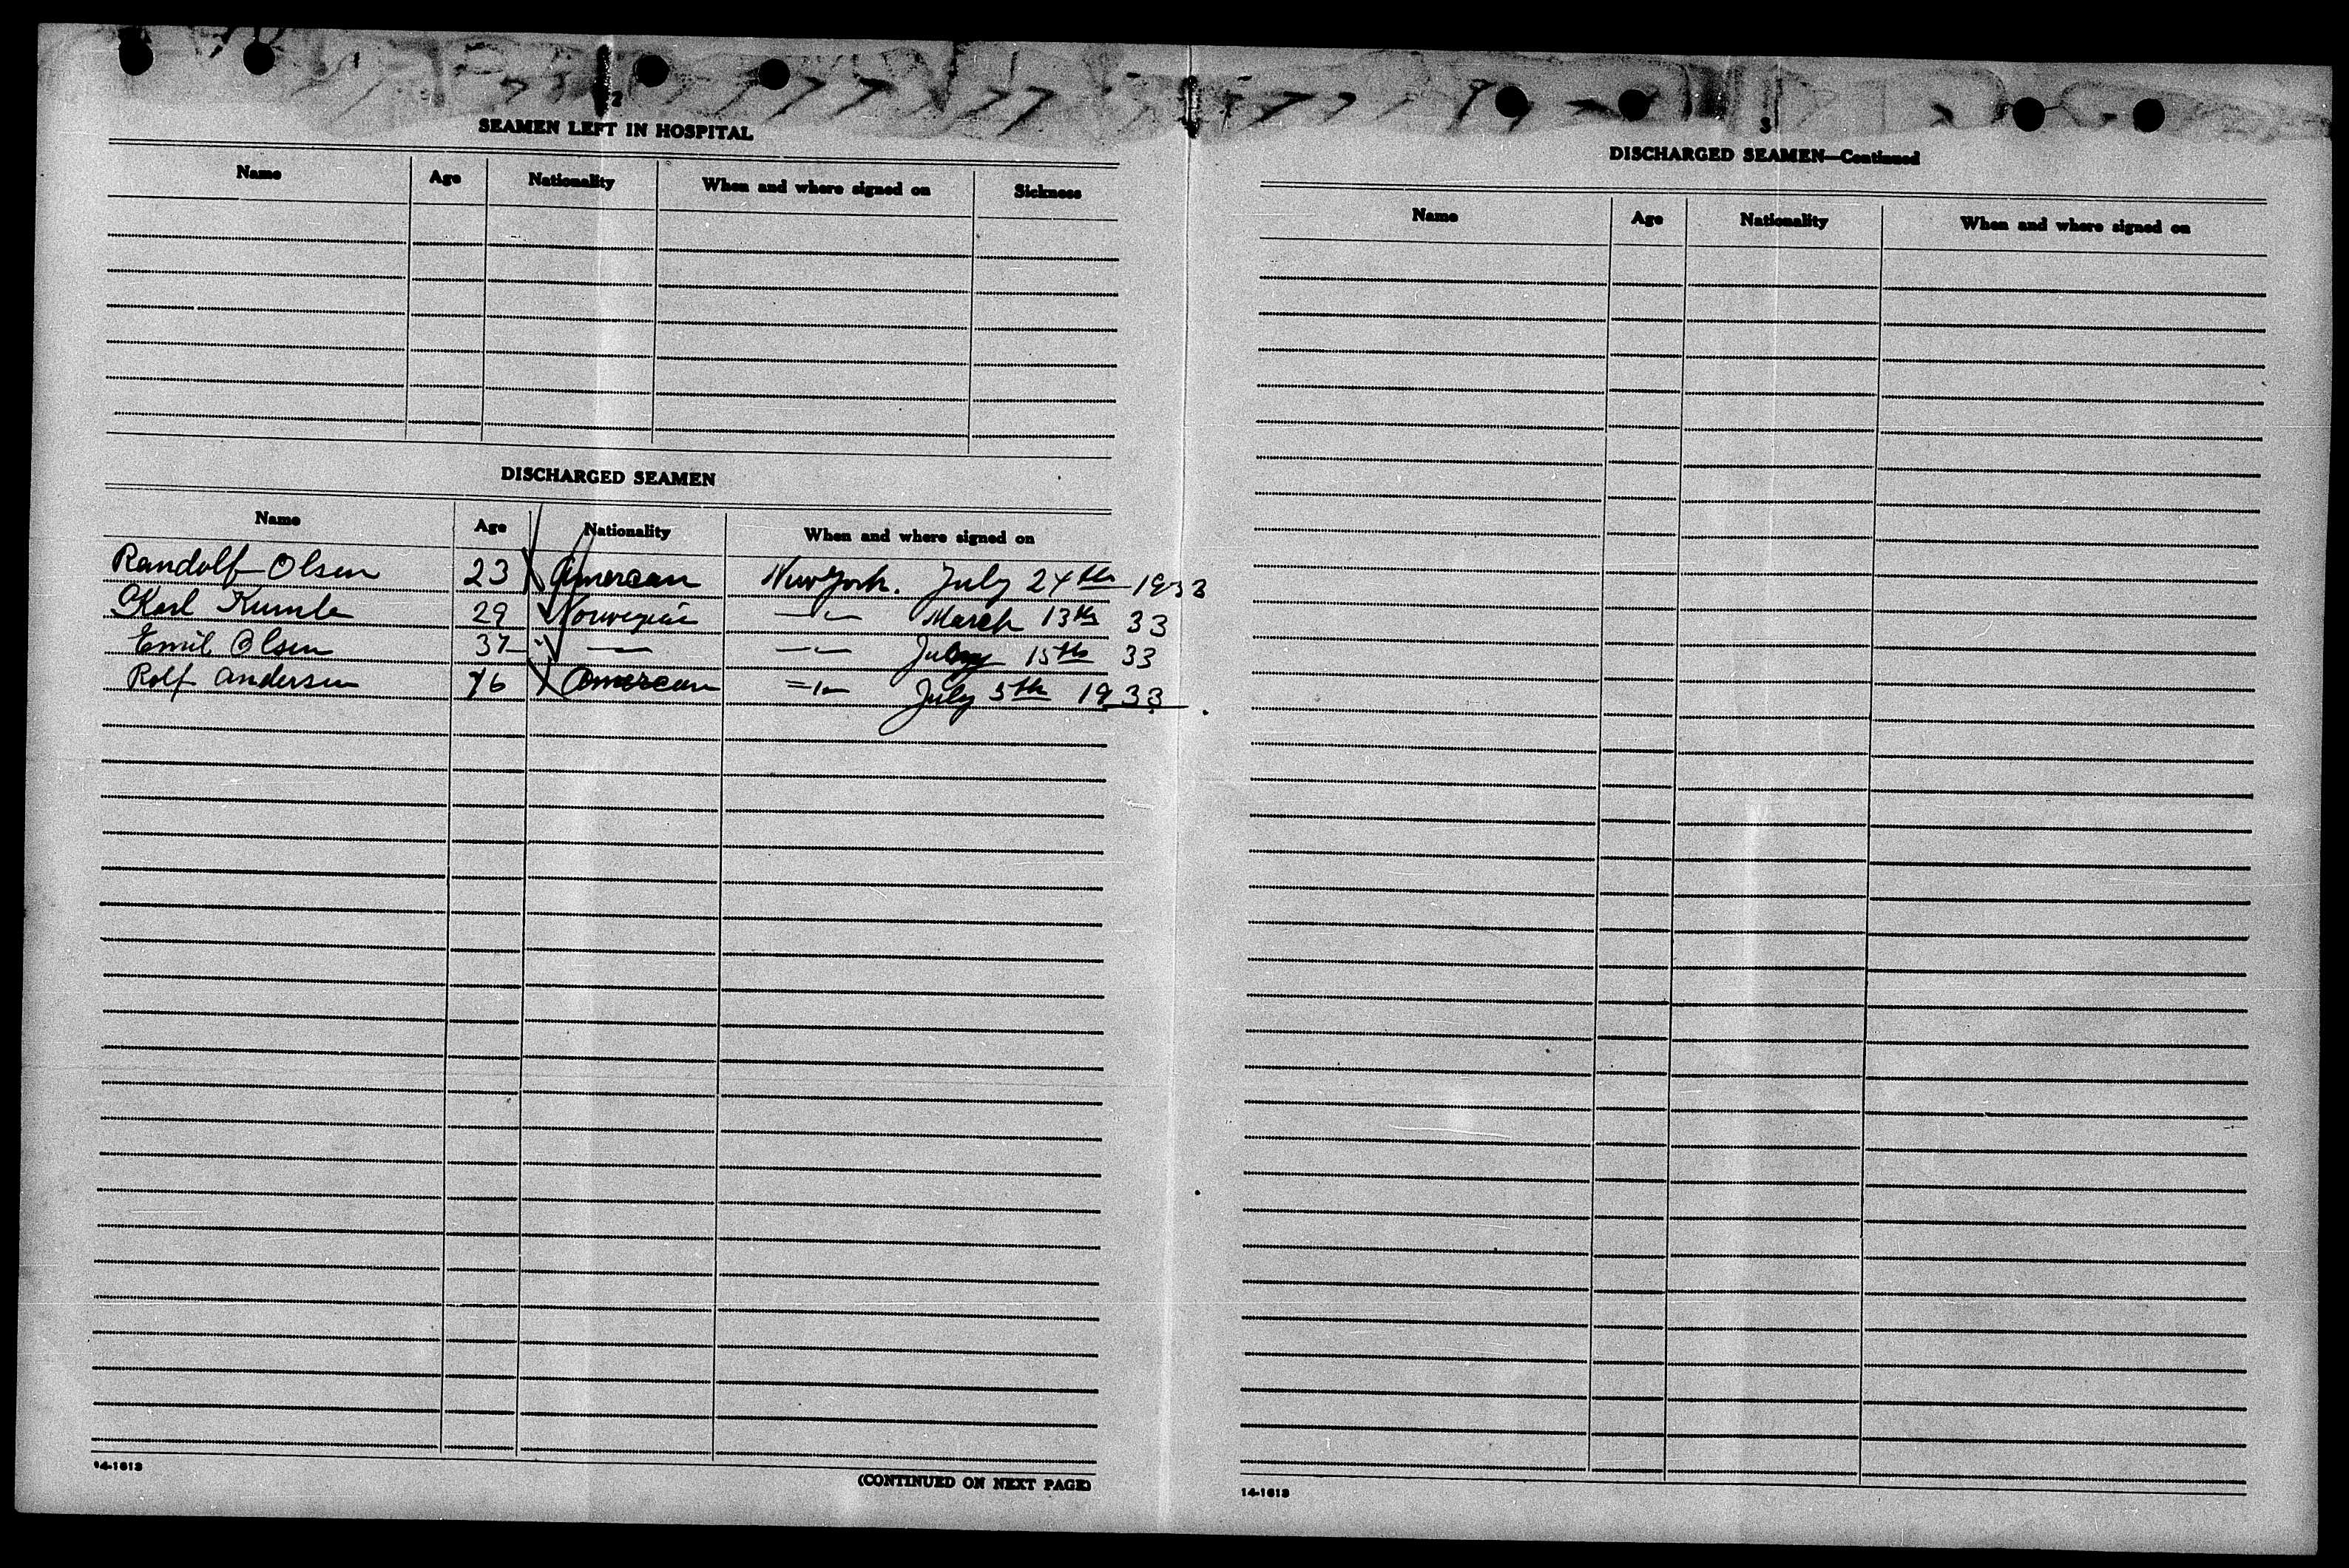 2
SEAMEN LEFT IN HOSPITAL
Name Age Nationality When and where signed on Sickness
DISCHARGED SEAMEN
Name Age Nationality When and where signed on
Randolf Olsen 23 American New York. July 24th 1933
Karl 29 Norwegian —"— March 13th 33
Emil Olsen 37 " — —"— 15th 33
Rolf Andersen American ="— July 5th 1933.
14-1613
(CONTINUED ON NEXT PAGE)
3
DISCHARGED SEAMEN—Continued
Name Age Nationality When and where signed on
14-1613